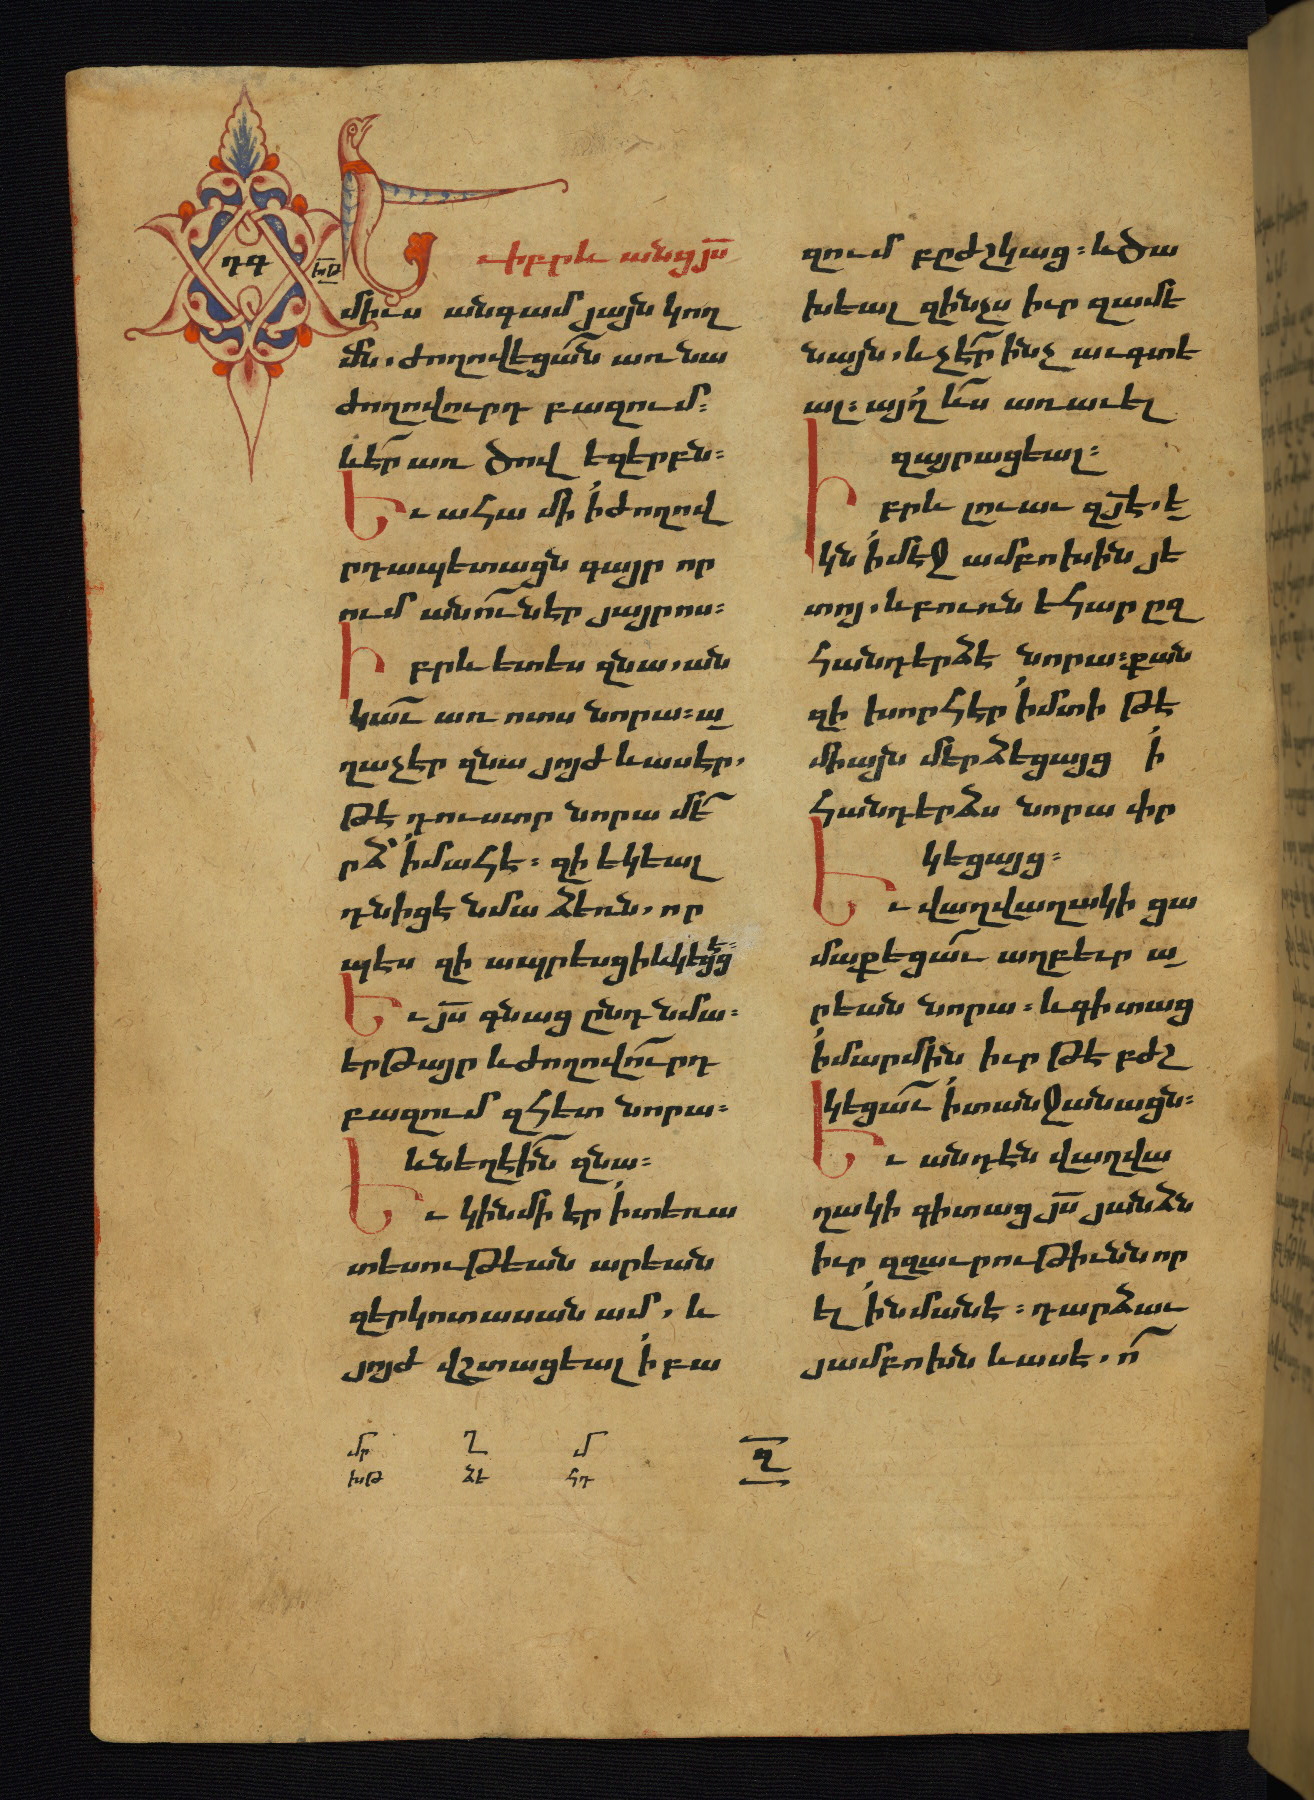 դգ
խթ
Եւ իբրև անց յս
միւս անգամ յայն կող
մն, ժողովեցան առ նա
ժողովուրդ բազում։
և էր առ ծով եզերբն։
Եւ ահա մի ի ժողով
րդապետացն գայր որ
ում անուն էր յայրոս։
Իբրև ետես զնա, ան
կաւ առ ոտս նորա։ ա
ղաչէր զնա յոյժ և ասէր,
թէ դուստր նորա մե
րձ ի մահ է։ զի եկեալ
դնիցէ նմա ձեռն, որ
պէս զի ապրեսցի և կեցցէ։
Եւ յս գնաց ընդ նմա։
երթայր և ժողովուրդ
բազում զհետ նորա։
և նեղէին զնա։
Եւ կին մի էր ի տեռա
տեսութեան արեան
զերկոտասան ամ, և
յոյժ վշտացեալ ի բա
զում բըժշկաց։ և ծա
խեալ զինչս իւր զամե
նայն, և չէր ինչ աւգտե
ալ։ այղ ևս առաւել
զայրացեալ։
Իբրև լուաւ զյէ, է
կն ի մէջ ամբոխին յե
տոյ, և բուռն եհար ըզ
հանդերձէ նորա։ քան
զի խորհէր ի մտի թէ
միայն մերձեցայց ի
հանդերձս նորա փր
կեցայց։
Եւ վաղվաղակի ցա
մաքեցաւ աղբեւր ա
րեան նորա։ և գիտաց
ի մարմին իւր թէ բժշ
կեցաւ ի տանջանացն։
Եւ անդէն վաղվա
ղակի գիտաց յս յանձն
իւր զզաւրութիւնն որ
ել ի նմանէ։ դարձաւ
յամբոխն և ասէ, ո
մր Ղ մ
խթ ձե հդ
Ղ